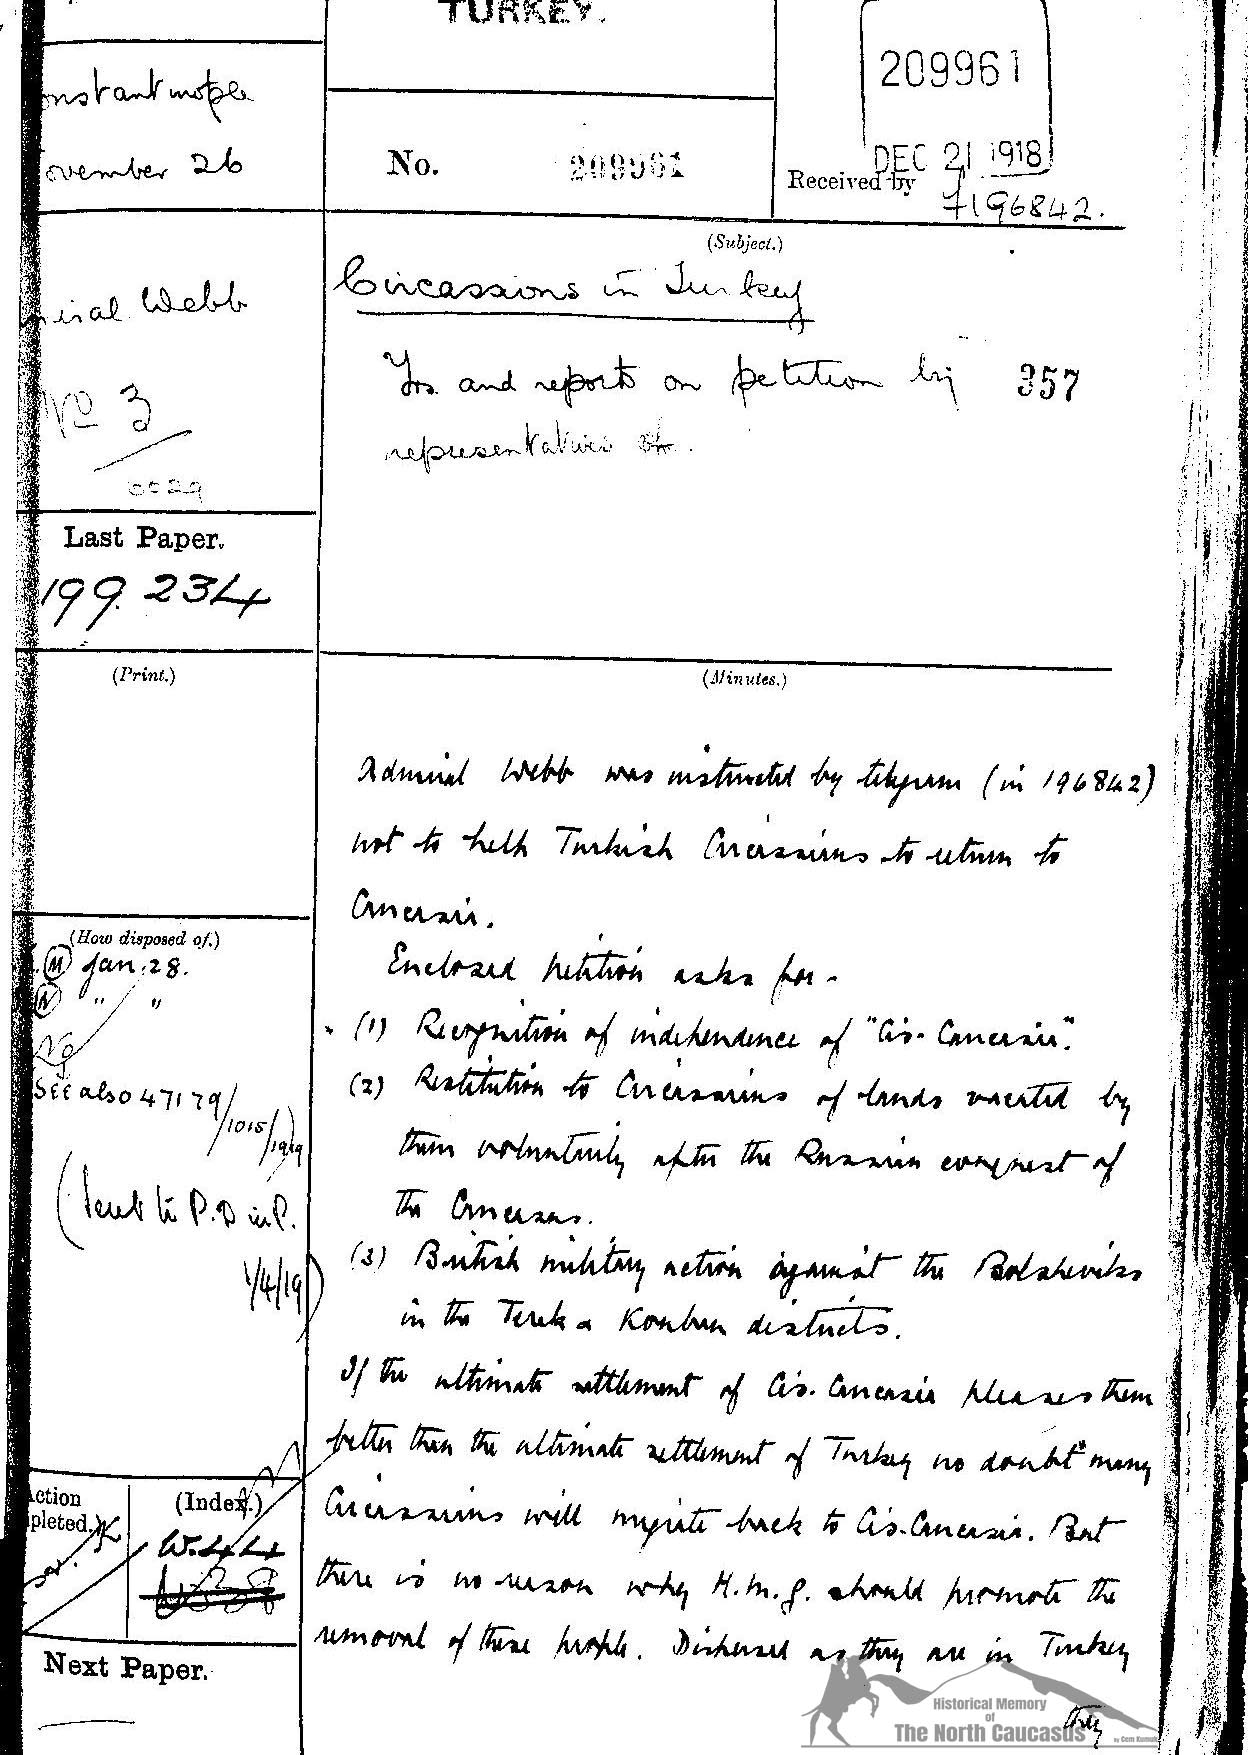 TURKEY.
209961
DEC 21 1918
onstantinople
ovember 26
No. 209961
Received by
7196842.
miral Webb
No 3
0029
(Subject.)
Circassions in Turkey
Trs. and reports on petition by
representatives of.
357
Last Paper.
199.234
(Print.)
(Minutes.)
Admiral Webb was instructed by telegram (in 196842)
not to help Turkish Circassians to return to
Caucasia.
Enclosed petition asks for -
(1) Recognition of independence of "Cis-Caucasia".
(2) Restitution to Circassians of lands vacated by
them voluntarily after the Russian conquest of
the Caucasus.
(3) British military action against the Bolsheviks
in the Terek & Kouban districts.
If the ultimate settlement of Cis-Caucasia pleases them
better than the ultimate settlement of Turkey no doubt many
Circassians will migrate back to Cis-Caucasia. But
there is no reason why H.M.G. should promote the
removal of these people. Dispersed as they are in Turkey
they
(How disposed of.)
M Jan. 28.
N " "
See also 47179/1015/1919
(Sent to P.D in P.
1/4/19)
ction
pleted.
(Index.)
W.44
Next Paper.
Historical Memory
of
The North Caucasus
by Cem Kumuk